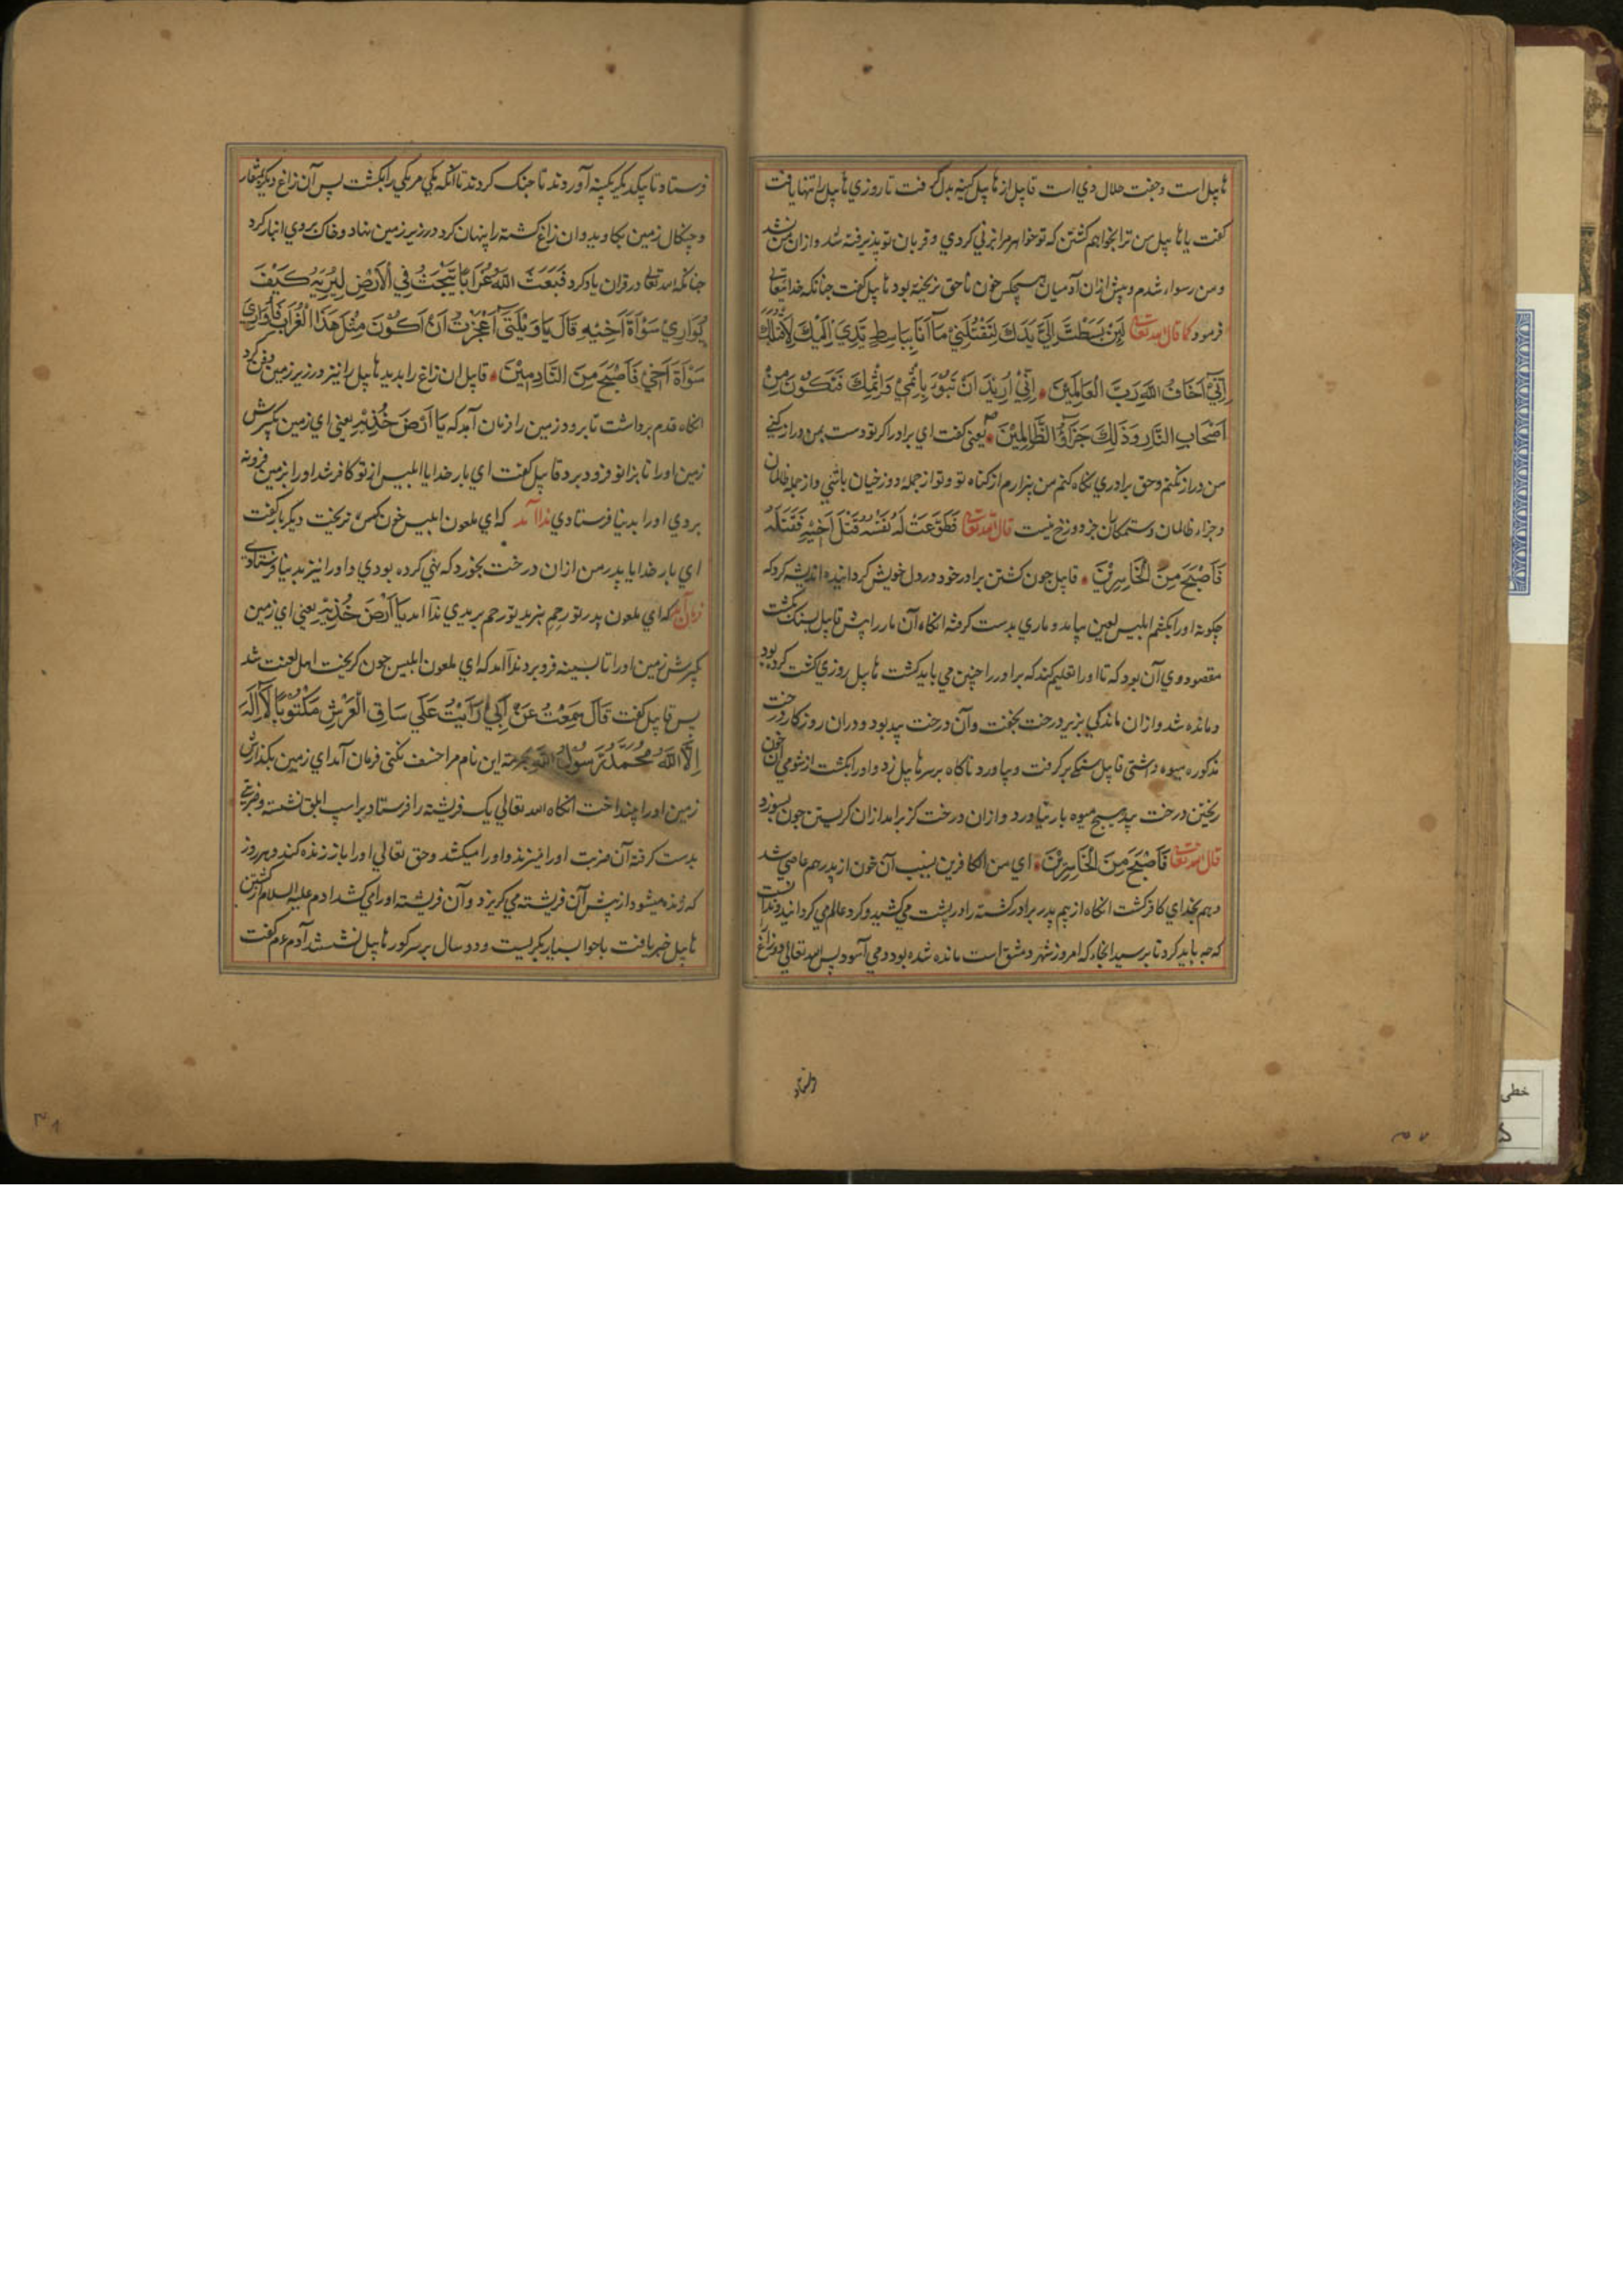 هابیل است و جفت حلال وی است قابیل از هابیل کینه بدل گرفت تا روزی هابیل را تنها یافت
گفت یا هابیل من ترا بخواهم کشتن که تو خواهر مرا بزنی کردی و قربان تو پذیرفته شد و ازان من نشد
و من رسواء شدم و پیش ازان آدمیان هیچکس خون ناحق نریخته بود هابیل گفت جنانکه خدایتعالی
فرمود کما قال الله تعالی لَئِنْ بَسَطْتَ إِلَيَّ يَدَكَ لِتَقْتُلَنِيْ مَآ اَنَا بِبَاسِطٍ يَدِيَ اِلَيْكَ لِاَقْتُلَكَ
اِنِّيْ اَخَافُ اللهَ رَبَّ الْعَالَمِيْنَ اِنِّيْ اُرِيْدُ اَنْ تَبُوْءَ بِاِثْمِيْ وَاِثْمِكَ فَتَكُوْنَ مِنْ
اَصْحَابِ النَّارِ وَذٰلِكَ جَزَآؤُ الظَّالِمِيْنَ یعنی گفت ای برادر اکر تو دست بمن دراز کنی
من دراز نکنم و حق برادری نکاه کنم من بیزارم از کناه تو و تو از جمله دوزخیان باشی و از جمله ظالمان
و جزاء ظالمان و ستمکاران جز دوزخ نیست قال الله تعالی فَطَوَّعَتْ لَهُ نَفْسُهُ قَتْلَ اَخِيْهِ فَقَتَلَهُ
فَاَصْبَحَ مِنَ الْخَاسِرِيْنَ قابیل جون کشتن برادر خود در دل خویش کردانیده اندیشه کرد که
جکونه اورا بکشم ابلیس لعین بیامد و ماری بدست کرفته انکاه آن مار را پیش قابیل بسنک بکشت
مقصود وی آن بود که تا اورا تعلیم کند که برادر را چنین می باید کشت هابیل روزی کشت کرده بود
و مانده شد و ازان ماندکی بزیر درخت بخفت و آن درخت بید بود و دران روزکار درخت
مذکوره میوه داشتی قابیل سنکی بر کرفت و بیاورد ناکاه بر سر هابیل زد و اورا بکشت از شومی آن خون
ریختن درخت بید هیچ میوه بار نیاورد و ازان درخت کز بر امد ازان کریستن جون بسوزد
قال الله تعالی فَاَصْبَحَ مِنَ الْخَاسِرِيْنَ ای من الکافرین بسبب آن خون از پدر هم عاصی شد
و هم بخدای کافر کشت انکاه از بیم پدر برادر کشته را در پشت می کشید و کرد عالم می کردانید و ندانست
که چه باید کرد تا برسید انجاء که امروز شهر دمشق است مانده شده بود و می آسود پس الله تعالی دو زاغ
فرستاد
فرستاد تا یکدیکر بکینه آوردند تا جنک کردند تا انکه یکی مر یکی را بکشت پس آن زاغ دیکر بمنقار
و چنکال زمین بکاوید و ان زاغ کشته را پنهان کرد در زیر زمین نهاد و خاک بروی انبار کرد
جنانکه الله تعالی در قران یاد کرد فَبَعَثَ اللهُ غُرَابًا يَّبْحَثُ فِي الْاَرْضِ لِيُرِيَهُ كَيْفَ
يُوَارِيْ سَوْاَةَ اَخِيْهِ قَالَ يَا وَيْلَتٰى اَعَجَزْتُ اَنْ اَكُوْنَ مِثْلَ هٰذَا الْغُرَابِ فَاُوَارِيَ
سَوْاَةَ اَخِيْ فَاَصْبَحَ مِنَ النَّادِمِيْنَ قابیل ان زاغ را بدید هابیل را نیز در زیر زمین دفن کرد
انکاه قدم برداشت تا برود زمین را فرمان آمد که يَا اَرْضُ خُذِيْهِ یعنی ای زمین بکیرش
زمین اورا تا بزانو فرود برد قابیل گفت ای بار خدایا ابلیس از تو کافر شد اورا بزمین فرو نه
بردی اورا بدنیا فرستادی ندا آمد که ای ملعون ابلیس خون کس نریخت دیکر بار گفت
ای بار خدایا پدر من ازان درخت بخورد که نهی کرده بودی و اورا نیز بدنیا فرستادی
فرمان آمد که ای ملعون پدر تو رحم نبرید تو رحم بریدی ندا امد يَا اَرْضُ خُذِيْهِ یعنی ای زمین
بکیرش زمین اورا تا بسینه فرو برد ندا امد که ای ملعون ابلیس جون کریخت اهل لعنت شد
پس قابیل گفت قَالَ سَمِعْتُ عَنْ اَبِيْ رَاَيْتُ عَلٰى سَاقِ الْعَرْشِ مَكْتُوْبًا لَآ اِلٰهَ
اِلَّا اللهُ مُحَمَّدٌ رَّسُوْلُ اللهِ بحرمة این نام مرا خسف نکنی فرمان آمد ای زمین بکذارش
زمین اورا بینداخت انکاه الله تعالی یک فریشته را فرستاد بر اسب ابلق نشسته و ضربتی
بدست کرفته آن ضربت اورا میزند و اورا میکشد و حق تعالی اورا باز زنده کند و هر روز
که زنده میشود از پیش آن فریشته می کریزد و آن فریشته اورا می کشد ادم علیه السلام از کشتن
هابیل خبر یافت با حوا بسیار بکریست و دو سال بر سر کور هابیل نشستند آدم ع م گفت
خطی
۳۷
۳۸